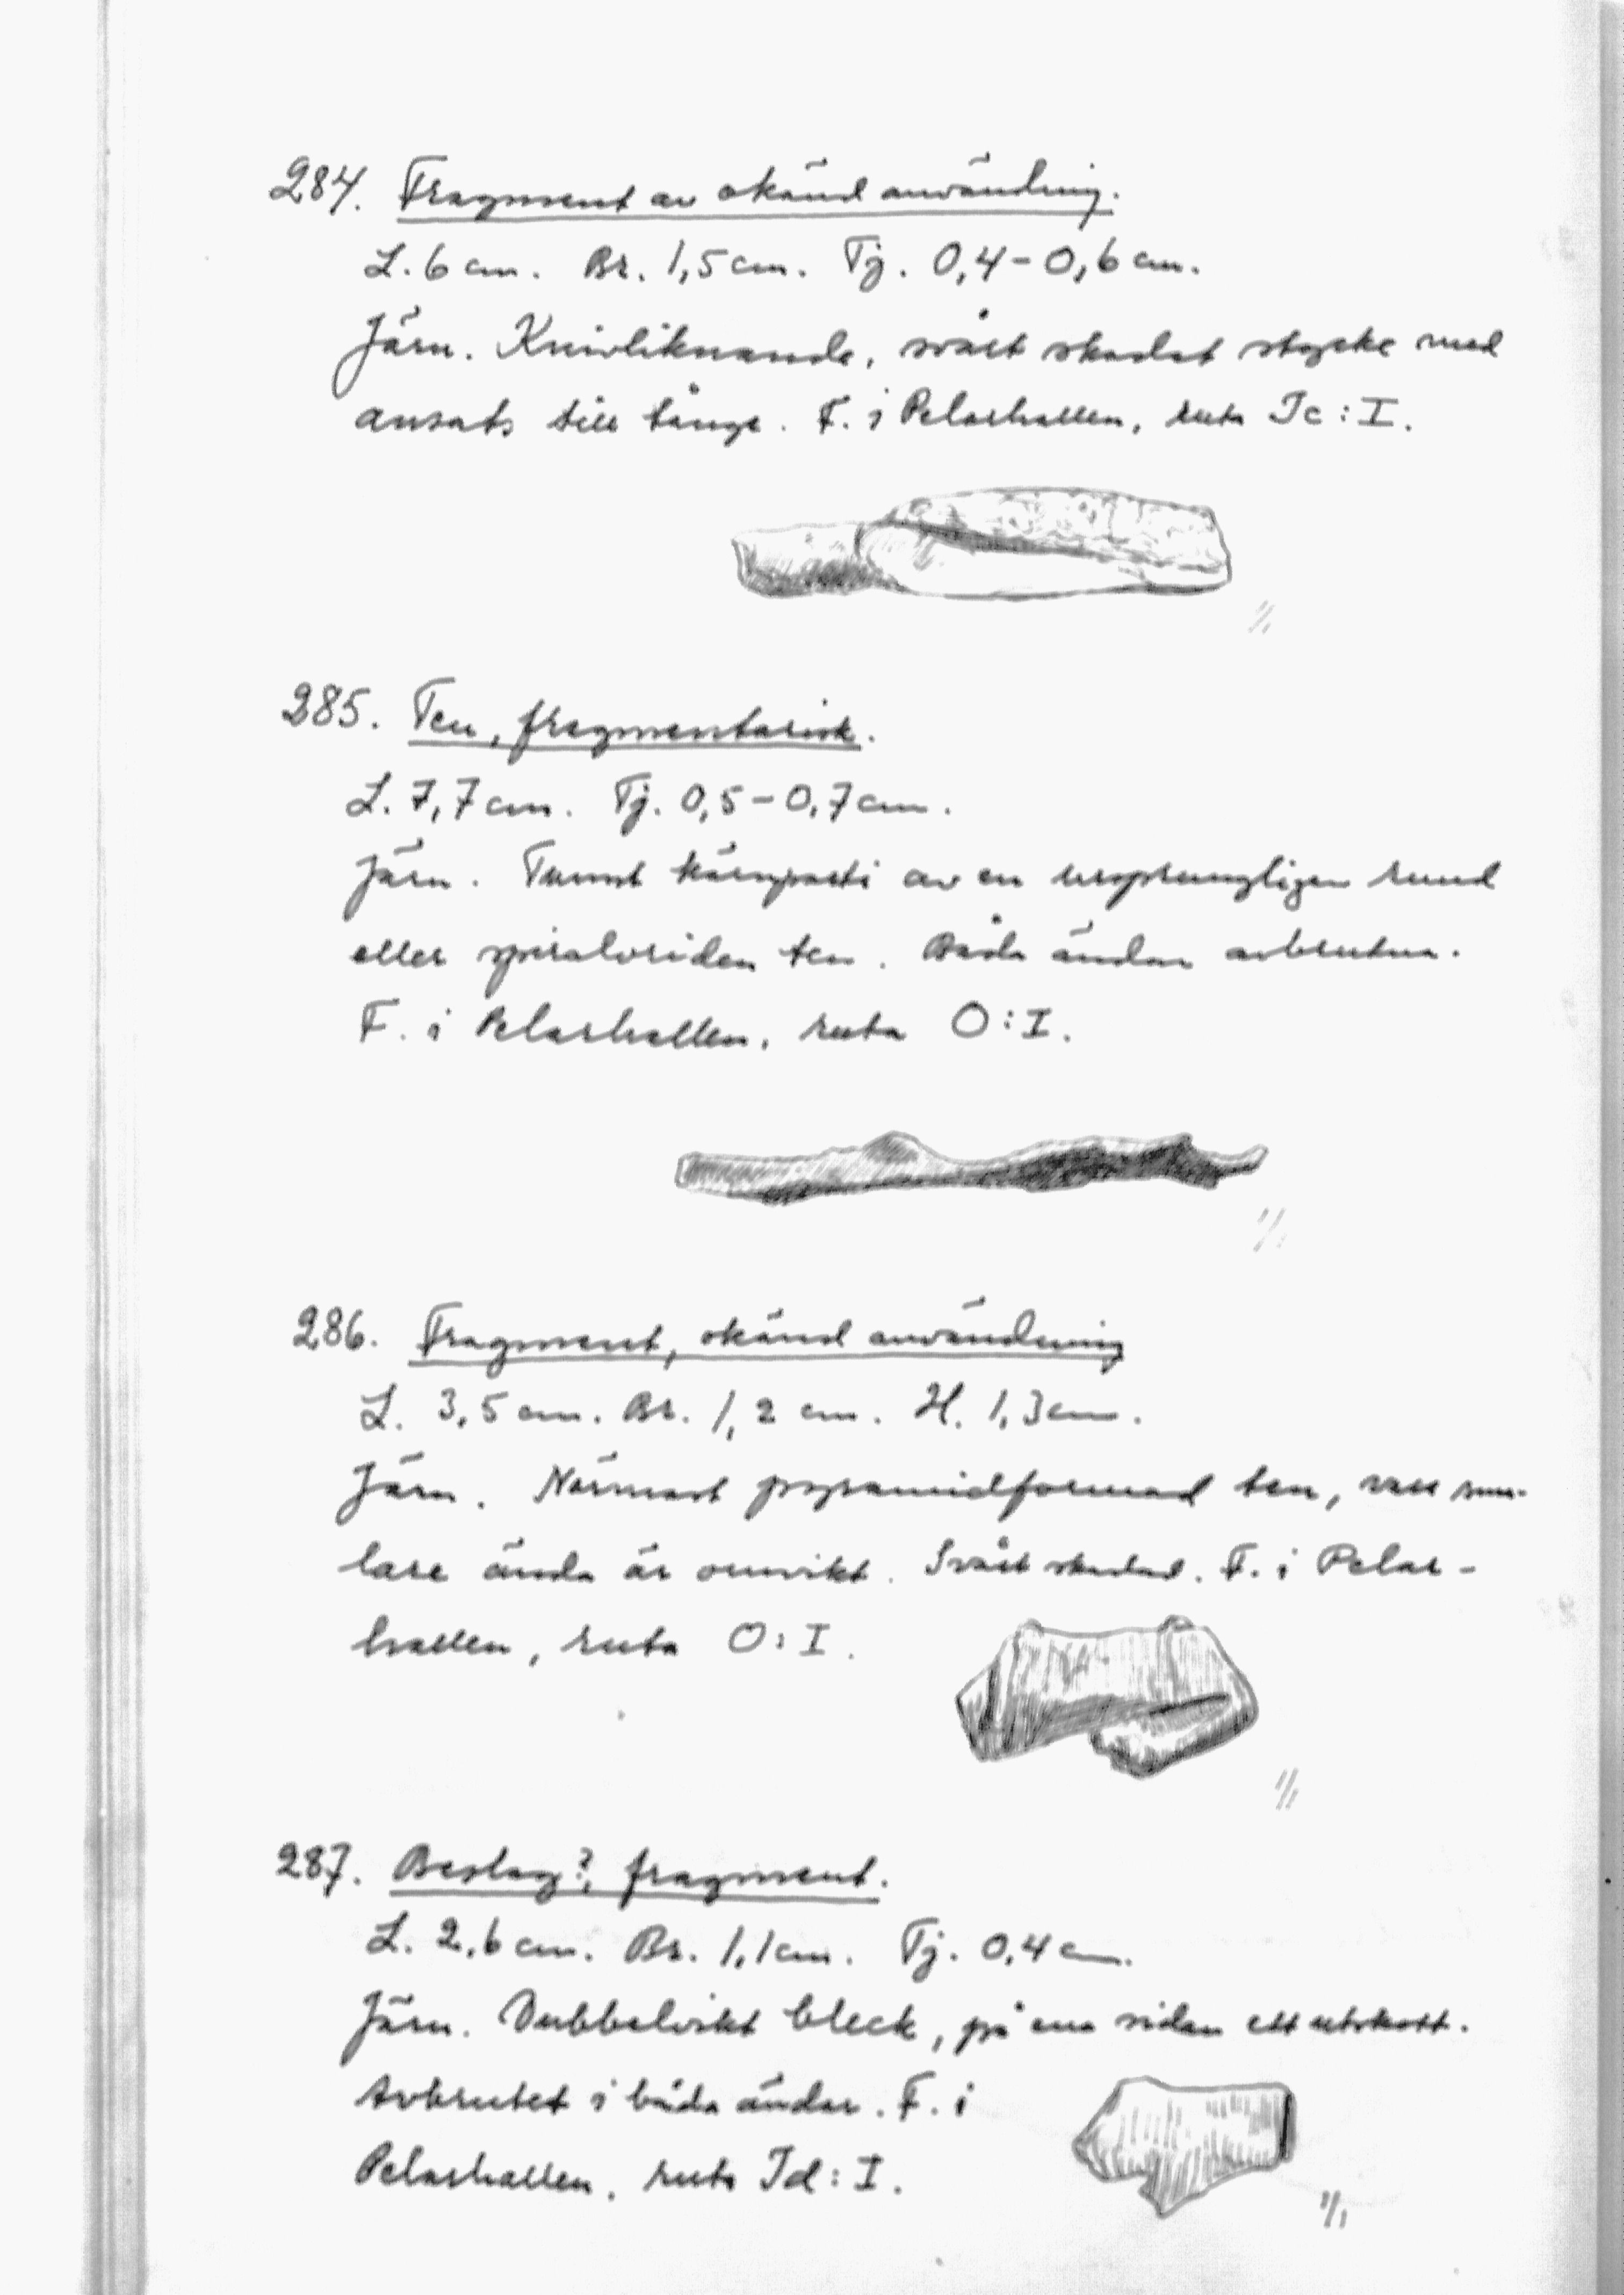 284. Fragment av okänd användning.
L. 6 cm. Br. 1,5 cm. Tj. 0,4-0,6 cm.
Järn. Knivliknande, svårt skadat stycke med
ansats till tånge. F. i Pelarhallen, ruta Jc:I.
1/1
285. Ten, fragmentarisk.
L. 7,7 cm. Tj. 0,5-0,7 cm.
Järn. Tunnt kärnparti av en ursprungligen rund
eller spiralvriden ten. Båda ändar avbrutna.
F. i Pelarhallen, ruta O:I.
1/1
286. Fragment, okänd användning
L. 3,5 cm. Br. 1,2 cm. H. 1,3 cm.
Järn. Närmast pyramidformad ten, vars sma-
lare ända är omvikt. Svårt skadad. F. i Pelar-
hallen, ruta O:I.
1/1
287. Beslag?, fragment.
L. 2,6 cm. Br. 1,1 cm. Tj. 0,4 cm.
Järn. Dubbelvikt bleck, på ena sidan ett utskott.
Avbrutet i båda ändar. F. i
Pelarhallen, ruta Jd:I.
1/1